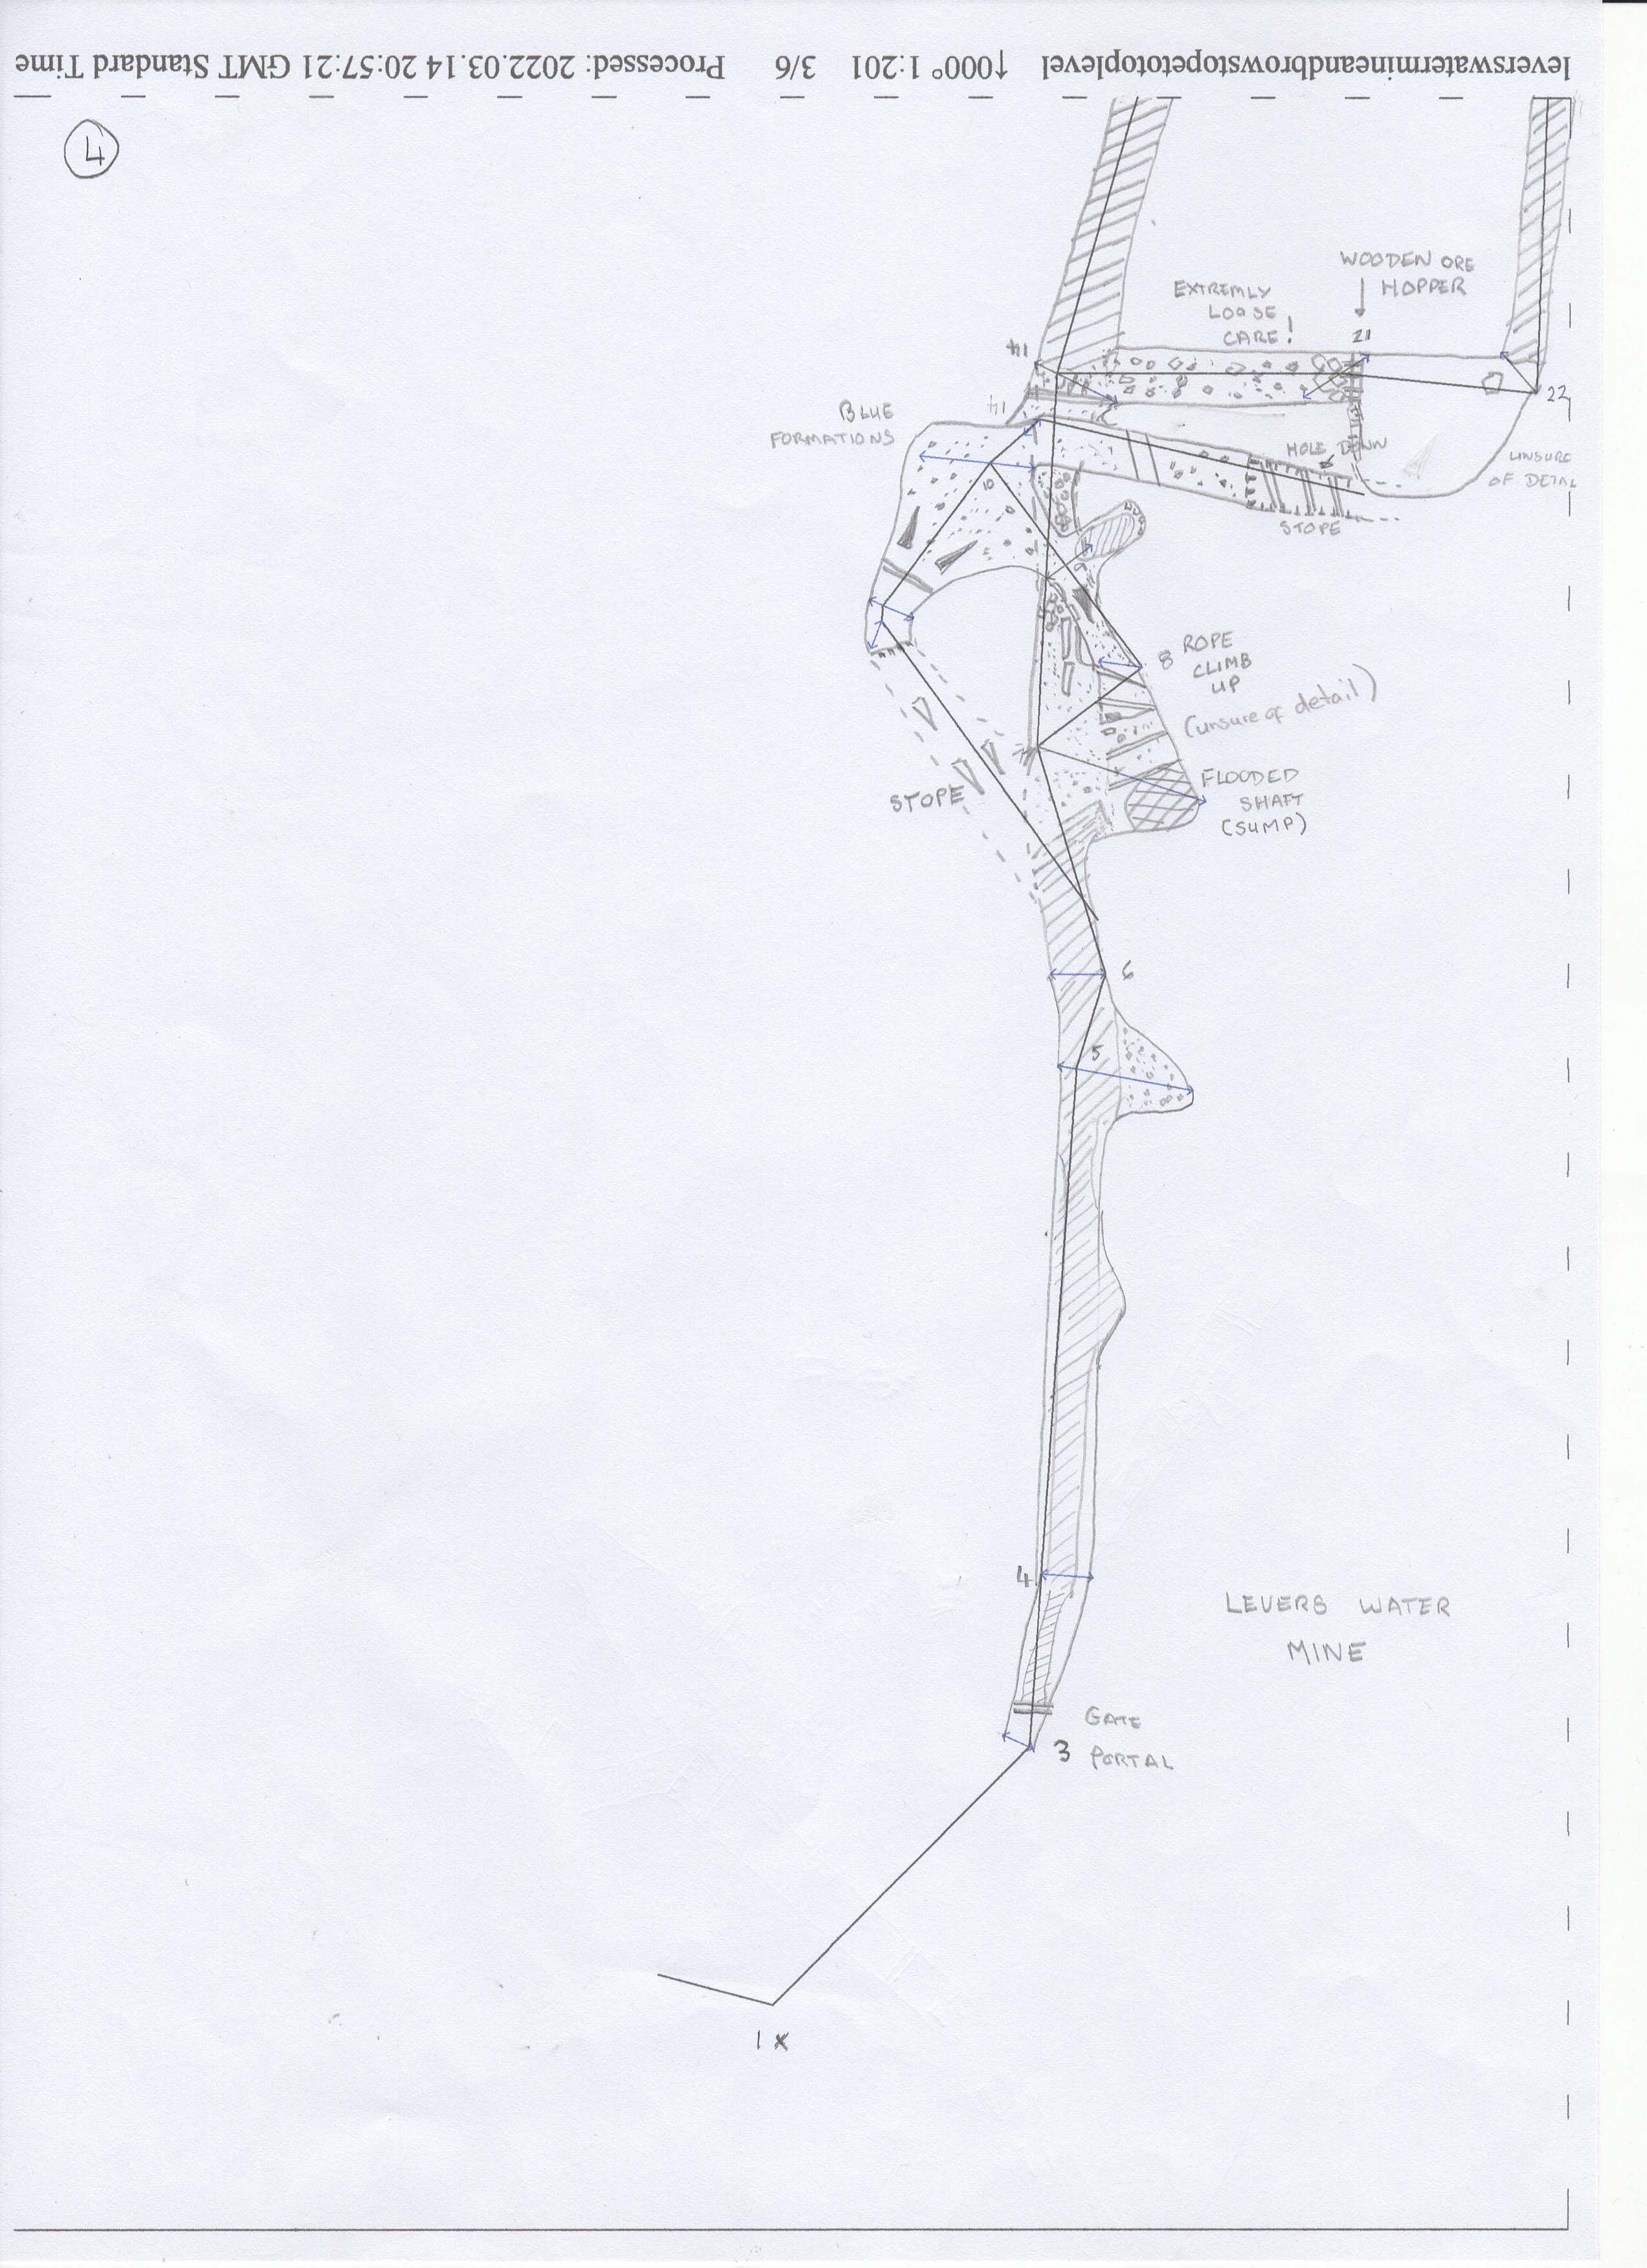 leverswatermineandbrowstopetotoplevel ↑000° 1:201 3/6 Processed: 2022.03.14 20:57:21 GMT Standard Time
4
WOODEN ORE
HOPPER
EXTREMLY
LOOSE
CARE!
21
14
22
14
BLUE
FORMATIONS
HOLE DOWN
UNSURE
OF DETAIL
STOPE
10
9
8 ROPE
CLIMB
UP
(unsure of detail)
STOPE
FLOODED
SHAFT
(SUMP)
6
5
4
LEVERS WATER
MINE
GATE
3 PORTAL
1 x